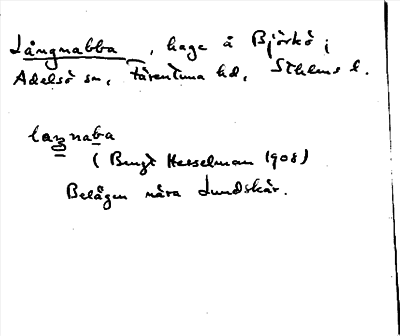 Långnabba, hage å Björkö i
Adelsö sn, Färentuna hd, Sthlms l.
langnaba
(Bengt Hesselman 1908)
Belägen nära Lundskär.